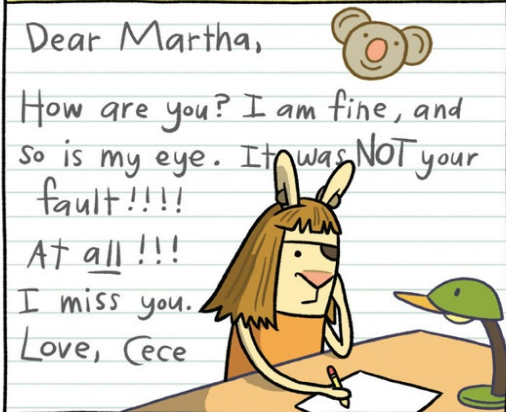 Dear Martha,
How are you? I am fine, and
so is my eye. It was NOT your
fault!!!!
At all!!!
I miss you.
Love, Cece